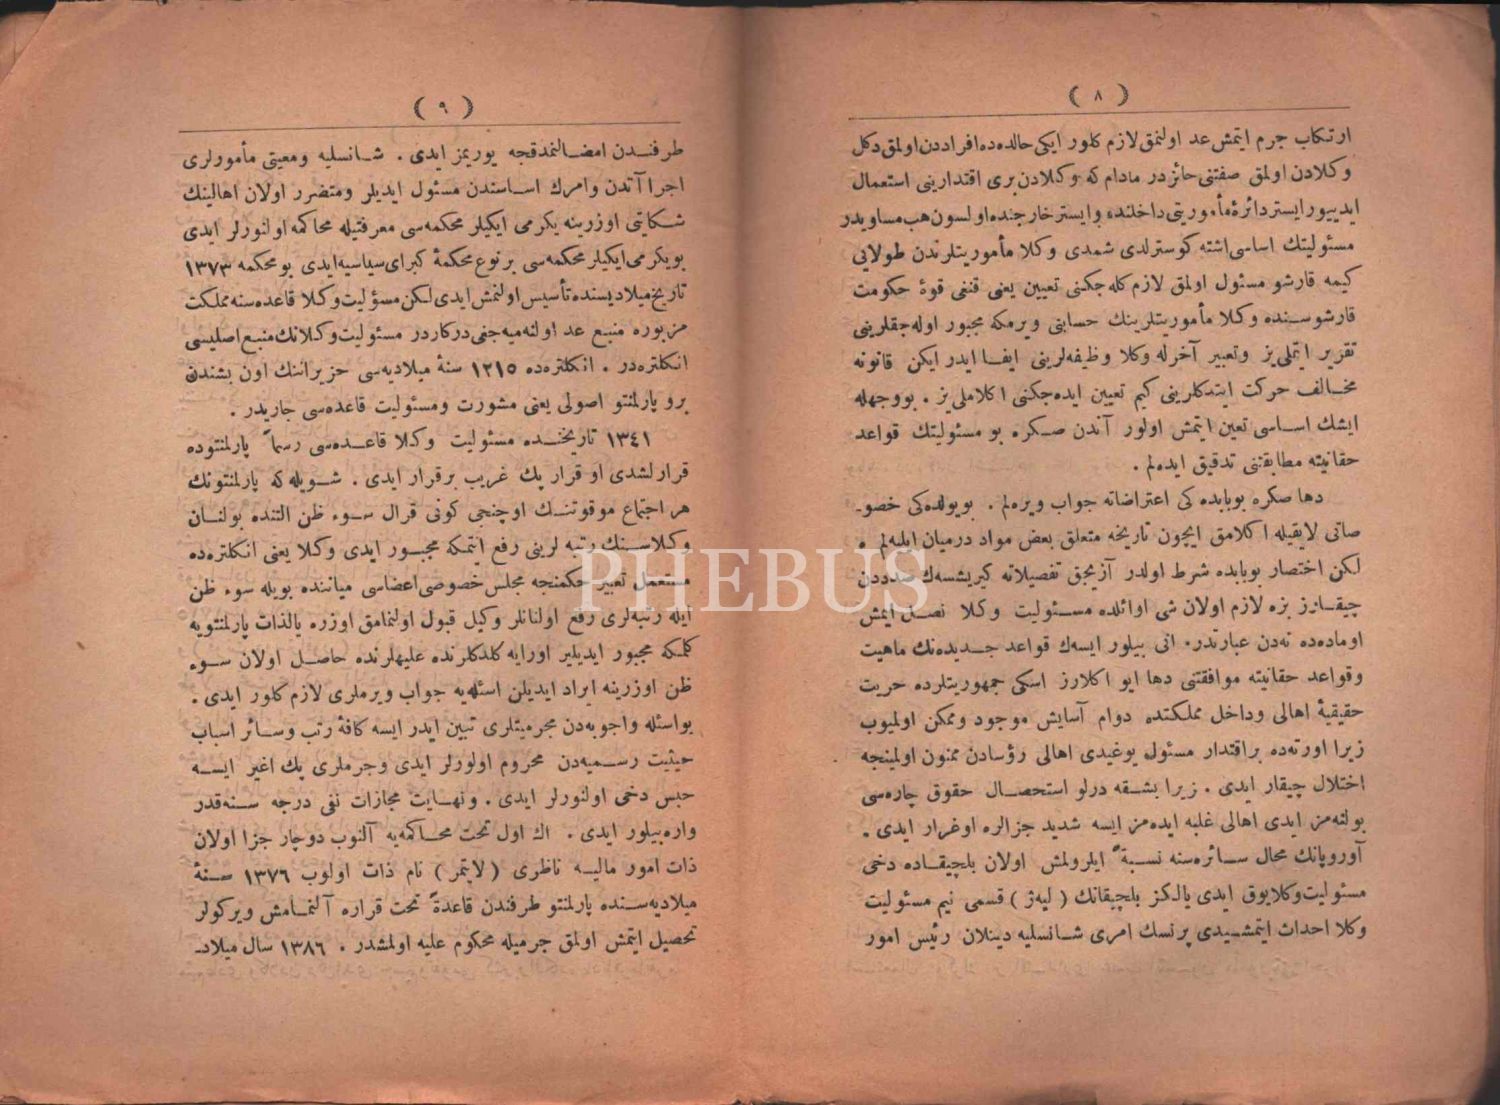 ( ٨ )
ارتكاب جرم ايتمش عد اولنمق لازم كلور ايكى حالده ده افراددن اولمق دكل
وكلادن اولمق صفتنى حائزدر مادام كه وكلادن برى اقتدارينى استعمال
ايدييور ايستر دائرۀ مأموريتى داخلنده وايستر خارجنده اولسون هب مساويدر
مسئوليتك اساسى اشته كوسترلدى شمدى وكلا مأموريتلرندن طولايى
كيمه قارشو مسئول اولمق لازم كله جكنى تعيين يعنى قنغى قوۀ حكومت
قارشوسنده وكلا مأموريتلرينك حسابنى ويرمكه مجبور اوله جقلرينى
تقرير ايتملى يز وتعبير آخرله وكلا وظيفه لرينى ايفا ايدر ايكن قانونه
مخالف حركت ايتدكلرينى كيم تعيين ايده جكنى اكلاملى يز . بووجهله
ايشك اساسى تعين ايتمش اولور آندن صكره بو مسئوليتك قواعد
حقانيته مطابقتنى تدقيق ايده لم .
دها صكره بوبابده كى اعتراضاته جواب ويره لم . بويولده كى خصو-
صاتى لايقيله اكلامق ايچون تاريخه متعلق بعض مواد درميان ايليه لم .
لكن اختصار بوبابده شرط اولدر آزيجق تفصيلاته كيريشسه ك صدددن
چيقارز بزه لازم اولان شى اوائلده مسئوليت وكلا نصل ايمش
اوماده ده نه دن عبارتدر . انى بيلور ايسه ك قواعد جديده نك ماهيت
وقواعد حقانيته موافقتنى دها ايو اكلارز اسكى جمهوريتلرده حريت
حقيقيۀ اهالى وداخل مملكتده دوام آسايش موجود وممكن اولميوب
زيرا اورته ده براقتدار مسئول يوغيدى اهالى رؤسادن ممنون اولمينجه
اختلال چيقار ايدى . زيرا بشقه درلو استحصال حقوق چاره سى
بولنه مز ايدى اهالى غلبه ايده مز ايسه شديد جزالره اوغرار ايدى .
آوروپانك محال سائره سنه نسبةً ايلرولمش اولان بلچيقاده دخى
مسئوليت وكلا يوق ايدى يالكز بلچيقانك ( ليه ژ ) قسمى نيم مسئوليت
وكلا احداث ايتمشيدى پرنسك امرى شانسليه دينلان رئيس امور
( ٩ )
طرفندن امضالنمدقجه يوريمز ايدى . شانسليه ومعيتى مأمورلرى
اجرا آتدن وامرك اساسندن مسئول ايديلر ومتضرر اولان اهالينك
شكايتى اوزرينه يكرمى ايكيلر محكمه سى معرفتيله محاكمه اولنورلر ايدى
بويكرمى ايكيلر محكمه سى برنوع محكمۀ كبراى سياسيه ايدى بو محكمه ١٣٧٣
تاريخ ميلاديسنده تأسيس اولنمش ايدى لكن مسؤليت وكلا قاعده سنه مملكت
مزبوره منبع عد اولنه ميه جغى دركاردر مسئوليت وكلانك منبع اصليسى
انكلتره در . انكلتره ده ١٢١٥ سنۀ ميلاديه سى حزيراننك اون بشندن
برو پارلمنتو اصولى يعنى مشورت ومسئوليت قاعده سى جاريدر .
١٣٤١ تاريخنده مسئوليت وكلا قاعده سى رسماً پارلمنتوده
قرارلشدى او قرار پك غريب برقرار ايدى . شويله كه پارلمنتونك
هر اجتماع موقوتنك اوچنجى كونى قرال سوء ظن التنده بولنان
وكلاسنك رتبه لرينى رفع ايتمكه مجبور ايدى وكلا يعنى انكلتره ده
مستعمل تعبير حكمنجه مجلس خصوصى اعضاسى مياننده بويله سوء ظن
ايله رتبه لرى رفع اولنانلر وكيل قبول اولنمامق اوزره بالذات پارلمنتويه
كلمكه مجبور ايديلير اورايه كلدكلرنده عليهلرنده حاصل اولان سوء
ظن اوزرينه ايراد ايديلن اسئله يه جواب ويرملرى لازم كلور ايدى .
بواسئله واجوبه دن مجرميتلرى تبين ايدر ايسه كافۀ رتب وسائر اسباب
حيثيت رسميه دن محروم اولورلر ايدى وجرملرى پك اغير ايسه
حبس دخى اولنورلر ايدى . ونهايت مجازات نفى درجه سنه قدر
واره بيلور ايدى . اك اول تحت محاكمه يه آلنوب دوچار جزا اولان
ذات امور ماليه ناظرى ( لايتمر ) نام ذات اولوب ١٣٧٦ سنۀ
ميلاديه سنده پارلمنتو طرفندن قاعدةً تحت قراره آلنمامش ويركولر
تحصيل ايتمش اولمق جرميله محكوم عليه اولمشدر . ١٣٨٦ سال ميلاد-
PHEBUS